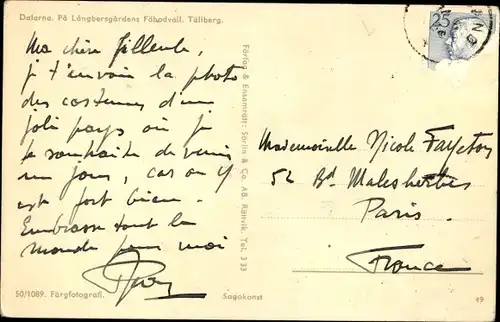 Dalarna. På Långbersgårdens Fäbodvall. Tällberg.
Ma chère filleule,
je t'envoie la photo
des costumes d'un
joli pays où je
te souhaite de venir
un jour, car on y
est fort bien.
Embrasse tout le
monde pour moi
Förlag & Ensamrätt: Sörlin & Co. AB. Rättvik. Tel. 333
25
Mademoiselle Nicole Fayeton
52 Bd Malesherbes
Paris.
France
50/1089. Färgfotografi.
Sagokonst
49